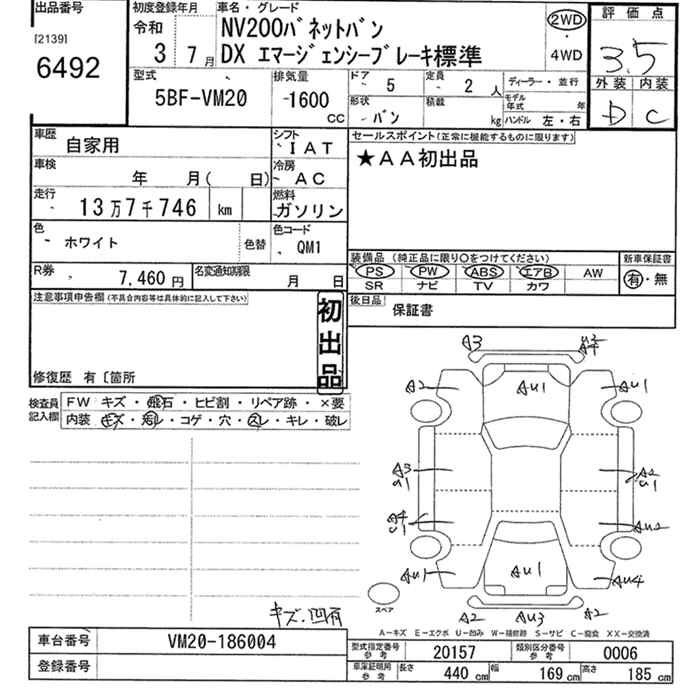 出品番号
[2139]
6492
初度登録年月
令和
3 7 月
車名・グレード
NV200バネットバン
DX エマージェンシーブレーキ標準
2WD
・
4WD
評価点
3.5
外装 内装
D C
型式
5BF-VM20
排気量
-1600
CC
ドア 5
定員 2 人
形状 バン
積載 kg
ディーラー・並行
モデル年式 年
ハンドル 左・右
車歴 自家用
シフト IAT
車検 年 月( 日)
冷房 AC
走行 13万7千746 km
燃料 ガソリン
色 ホワイト
色替
色コード QM1
R券 7,460 円
名変通知期限 月 日
セールスポイント(正常に機能するものに限ります)
★AA初出品
装備品 (純正品に限り○をつけてください)
新車保証書
PS PW ABS エアB AW
SR ナビ TV カワ
有・無
後日品 保証書
注意事項申告欄(不具合内容等は具体的に記入して下さい)
初出品
修復歴 有〔箇所
検査員記入欄
FW キズ・飛石・ヒビ割・リペア跡・×要
内装 キズ・汚レ・コゲ・穴・スレ・キレ・破レ
A3
A2 AU1 AU1
A3 A2
U1 U1
A4 AU2
U1
AU1 AU1 AU4
A2 AU3 A2
スペア
キズ.凹有
A-キズ E-エクボ U-凹み W-補修跡 S-サビ C-腐食 XX-交換済
車台番号 VM20-186004
登録番号
型式指定番号参考 20157
類別区分番号参考 0006
車庫証明用参考 長さ 440 cm 幅 169 cm 高さ 185 cm